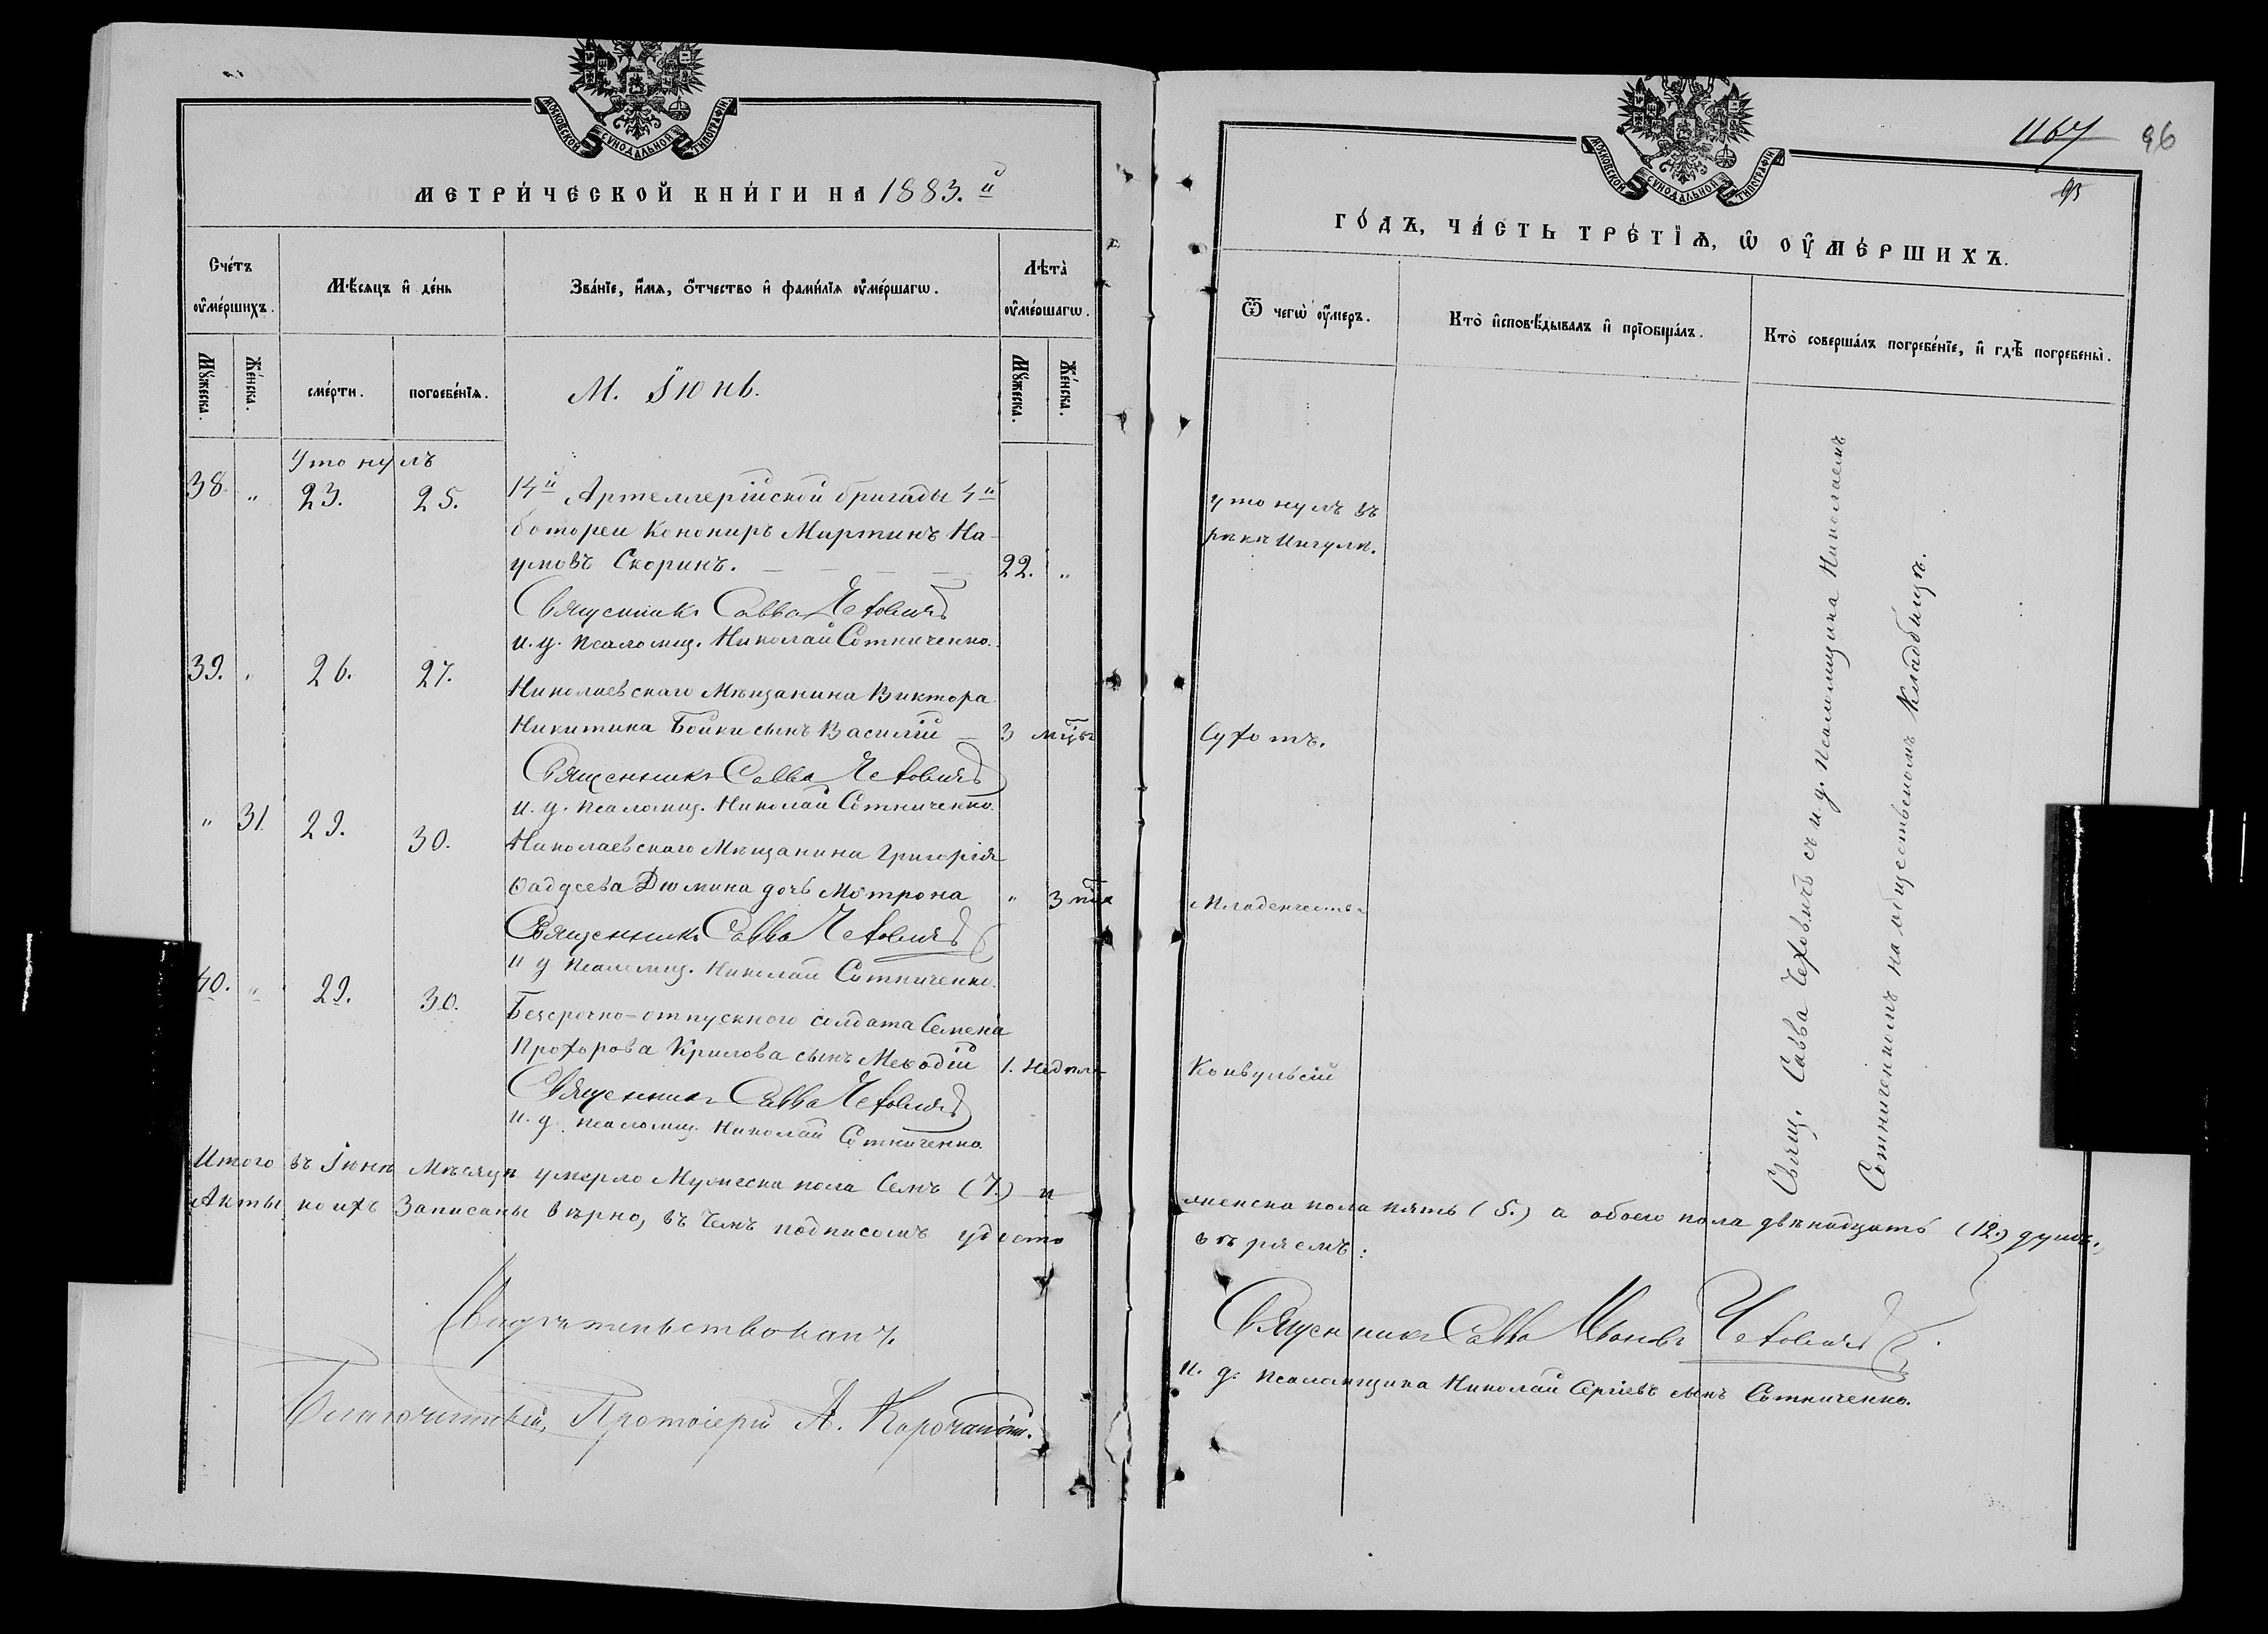 МОСКОВСКОЙ СѴНОДАЛЬНОЙ ТИПОГРАФІИ
МЕТРИ́ЧЕСКОЙ КНИ́ГИ НА 1883.й
Сче́тъ ᲂу҆ме́ршихъ.
Мѣ́сяцъ и҆ де́нь
Зва́нїе, и҆́мѧ, ѻ҆́тчество и҆ фамі́лїѧ ᲂу҆ме́ршагѡ.
Лѣ́та ᲂу҆ме́ршагѡ.
Мꙋ́жеска.
Же́нска.
сме́рти.
погребе́нїѧ.
М. Іюнь.
Мꙋ́жеска.
Же́нска.
Утонулъ
38. " 23. 25. 14й Артеллерійской бригады 4й
ботореи Кононир Мартинъ На-
умовъ Скоринъ. 22. "
Священникъ Савва Чеховичъ
и. д. псаломщ. Николай Сотниченко.
39. " 26. 27. Николаевскаго Мѣщанина Виктора
Никитина Бойки сынъ Василій 3 мцы
Священникъ Савва Чеховичъ
и. д. псаломщ. Николай Сотниченко.
" 31 29. 30. Николаевскаго Мѣщанина Григорія
Фадѣева Дюмина дочь Мотрона " 3
Священникъ Савва Чеховичъ
и д псаломщ. Николай Сотниченко.
40. " 29. 30. Безсрочно-отпускного солдата Семена
Прохорова Крилова сынъ Меѳодій 1. недѣля
Священникъ Савва Чеховичъ
и. д. псаломщ. Николай Сотниченко.
Итого въ Іюнѣ Мѣсяцѣ умерло Мужеска пола Семъ (7.) и
Акты коихъ Записаны вѣрно, въ чемъ подписомъ удосто
Свидѣтельствовалъ
Благочинный, Протоіерей А. Корочанскій.
1167 96
95
МОСКОВСКОЙ СѴНОДАЛЬНОЙ ТИПОГРАФІИ
ГО́ДЪ, ЧА́СТЬ ТРЕ́ТЇѦ, Ѡ҆ ОУ҆МЕ́РШИХЪ.
Ѿ чегѡ̀ ᲂу҆́меръ.
Кто̀ и҆сповѣ́дывалъ и҆ прїобща́лъ.
Кто̀ соверша́лъ погребе́нїе, и҆ гдѣ̀ погребены̀.
утонулъ въ
рѣкѣ Ингулѣ.
Сухотъ.
Младенчества
Конвульсій
Свящ. Савва Чеховичъ съ и. д. Псаломщика Николаемъ
Сотниченкомъ на общественомъ Кладбищѣ.
женска пола пять (5.) а обоего пола двѣнадцать (12.) душъ.
вѣряемъ:
Священникъ Савва Ивановъ Чеховичъ
и. д. псаломщика Николай Сергіевъ сынъ Сотниченко.